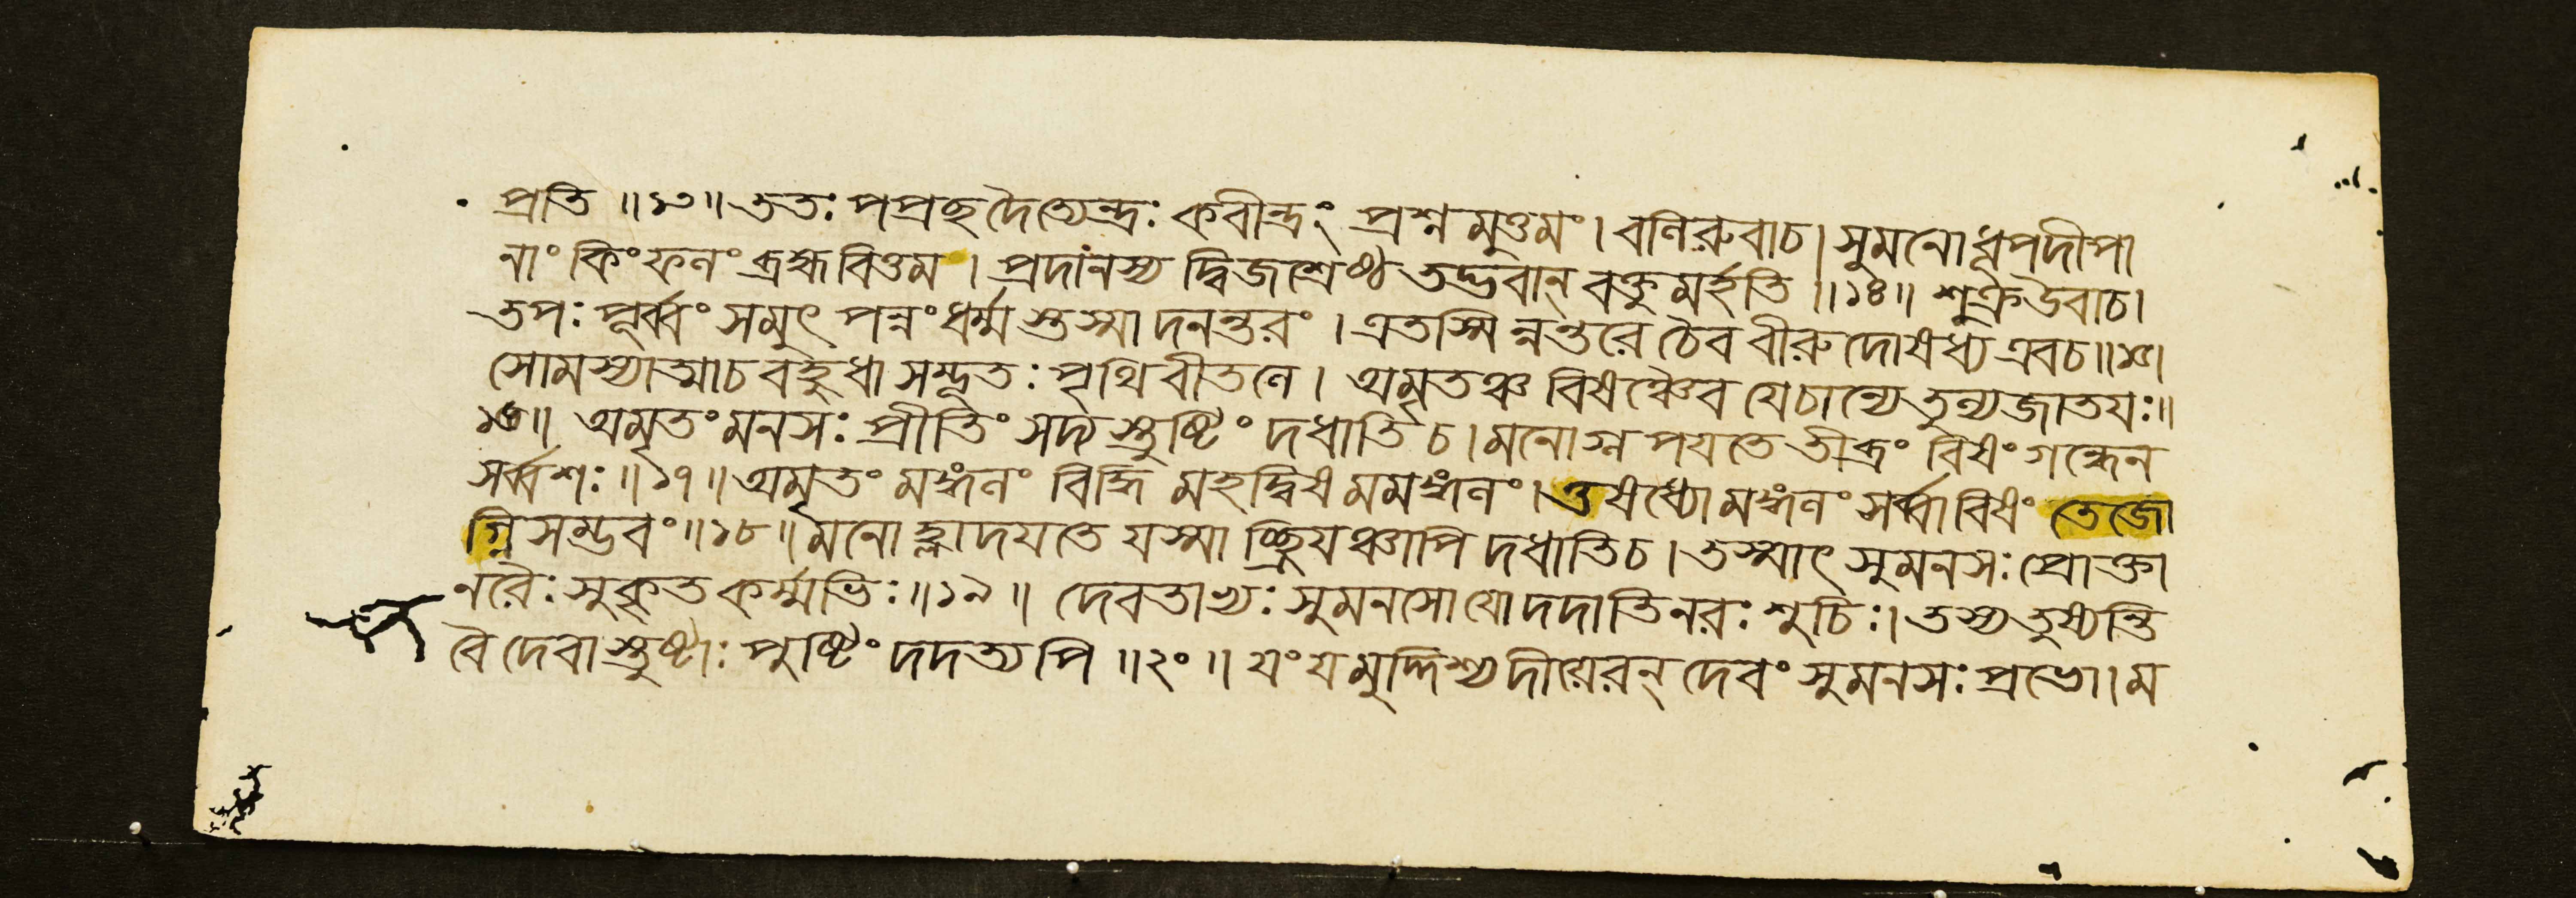 প্রতি ॥১৩॥ ততঃ পপ্রছ দৈত্যেন্দ্রঃ কবীন্দ্রং প্রশ্নমুত্তমং। বলিরুবাচ। সুমনোধূপদীপা
নাং কিং ফলং ব্রহ্মবিত্তম । প্রদানস্য দ্বিজশ্রেষ্ঠ তদ্ভবান্ বক্তুমর্হতি ॥১৪॥ শুক্রউবাচ।
তপঃ পূর্ব্বং সমুৎপন্নং ধর্ম্মস্তস্মাদনন্তরং । এতস্মিন্নন্তরে চৈব বীরুদোষধ্য এবচ॥১৫।
সোমস্যাত্মাচ বহুধা সম্ভূতঃ পৃথিবীতলে। অমৃতঞ্চ বিষঞ্চৈব যেচান্যে তুল্যজাতয়ঃ॥
১৬॥ অমৃতং মনসঃ প্রীতিং সদ্যস্তুষ্টিং দধাতি চ। মনোগ্লপয়তে তীব্রং বিষং গন্ধেন
সর্ব্বশঃ॥১৭॥ অমৃতং মঙ্গলং বিদ্ধি মহদ্বিষমমঙ্গলং। ওষধ্যোমঙ্গলং সর্ব্বা বিষং তেজো
গ্নিসম্ভবং॥১৮॥ মনোহ্লাদয়তে যস্মাচ্ছ্রিয়ঞ্চাপি দধাতিচ। তস্মাৎ সুমনসঃ প্রোক্তা
নরৈঃ সুকৃতকর্ম্মভিঃ॥১৯॥ দেবতাভ্যঃ সুমনসো যোদদাতিনরঃ শুচিঃ। তস্য তুষ্যন্তি
বৈ দেবাস্তুষ্টাঃ পুষ্টিং দদত্যপি ॥২০॥ যং যমুদ্দিশ্য দীয়েরন্ দেবং সুমনসঃ প্রভো। ম